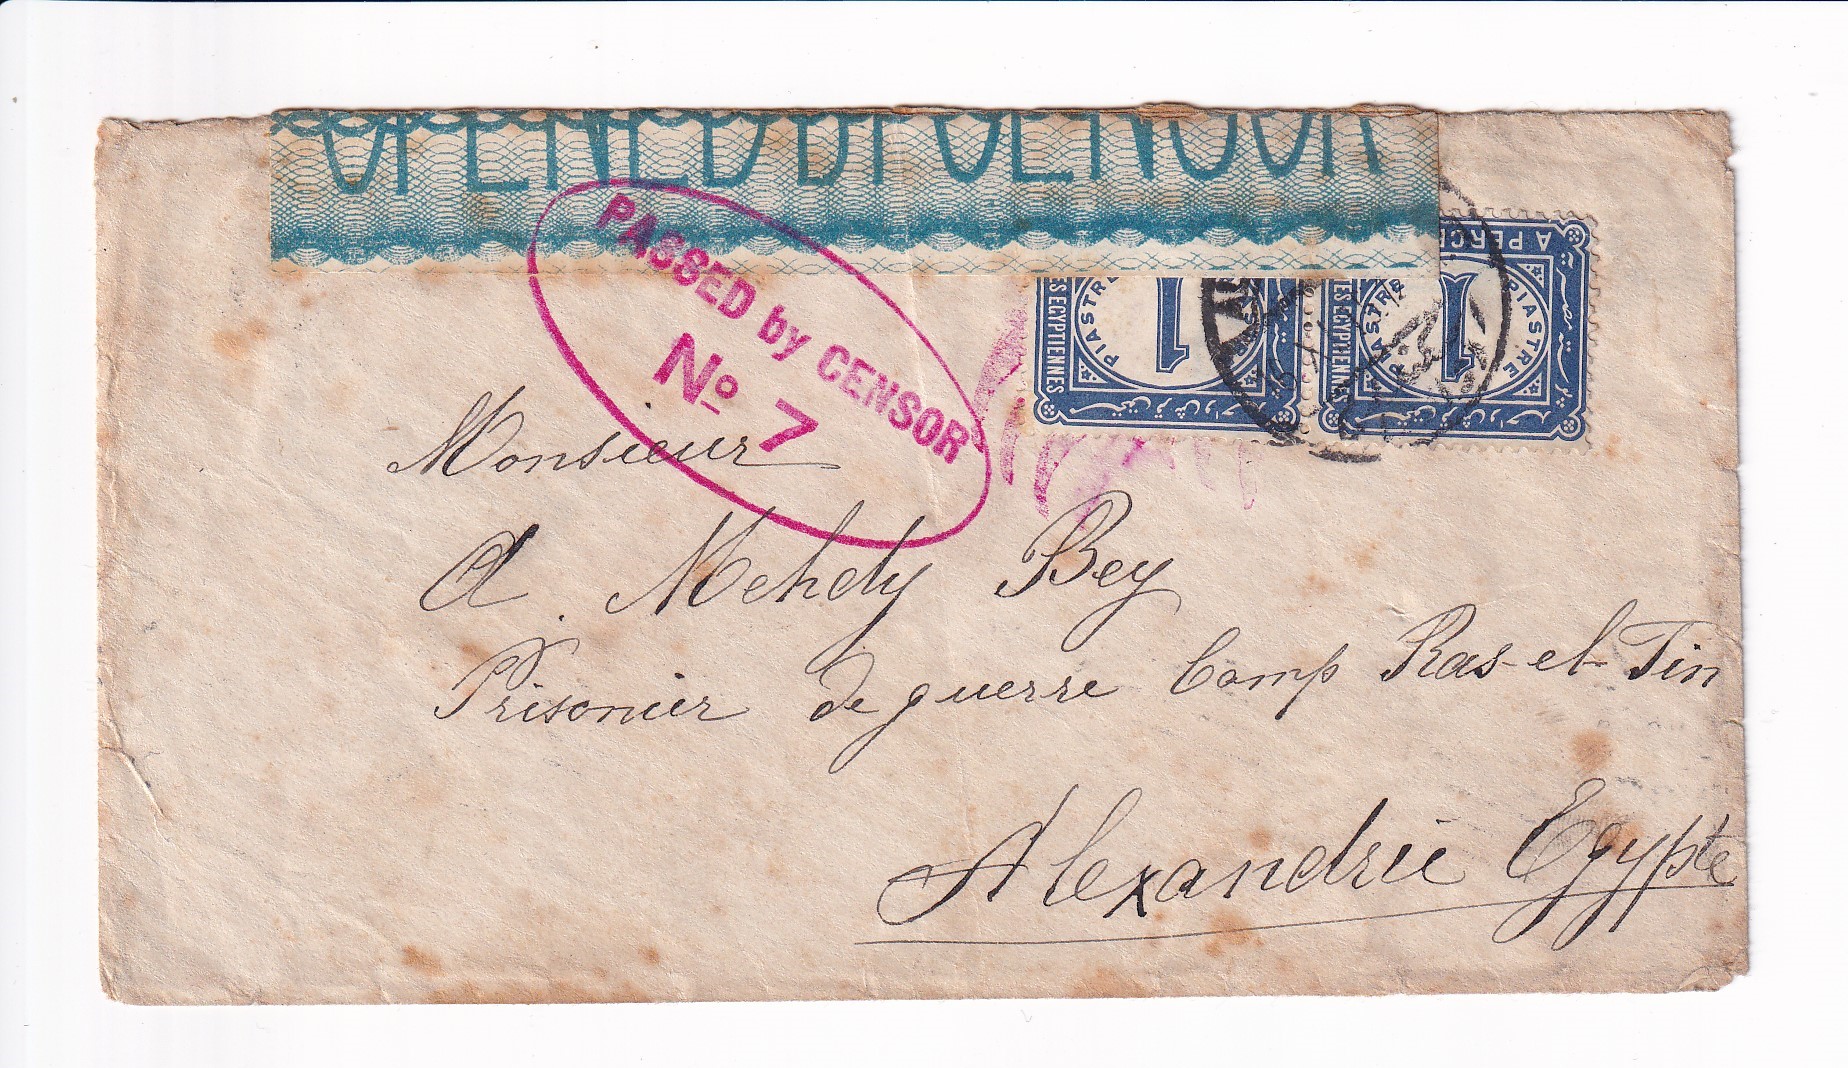 OPENED BY CENSOR
PASSED by CENSOR
Nº 7
A PERCE
ES EGYPTIENNES
PIASTRE
1
TES EGYPTIENNES
PIASTRE
1
PIASTRE
Monsieur
A. Mehdy Bey
Prisonier de guerre Camp Ras-el-Tin
Alexandrie Egypte